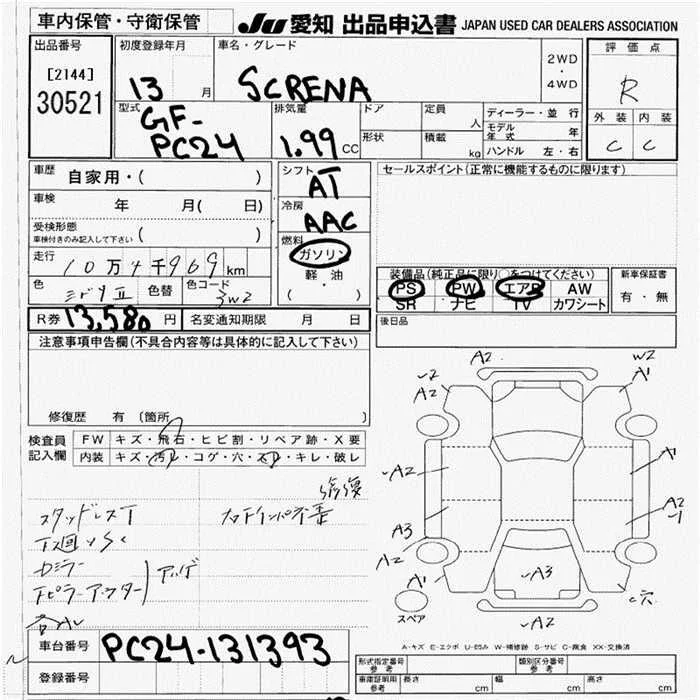 車内保管・守衛保管
JU 愛知 出品申込書 JAPAN USED CAR DEALERS ASSOCIATION
出品番号
[2144]
30521
初度登録年月
13 月
車名・グレード
SCRENA
2WD
・
4WD
評価点
R
外装 内装
C C
型式
GF-
PC24
排気量
1.99 CC
ドア
形状
定員 人
積載 kg
ディーラー・並行
モデル年式 年
ハンドル 左・右
車歴 自家用・( )
車検 年 月( 日)
受検形態
車検付きのみ記入して下さい ( )
走行 10万4千969km
色
色替
色コード 3W2
シフト AT
冷房 AAC
燃料
ガソリン
軽・油
( ・ )
セールスポイント(正常に機能するものに限ります)
装備品(純正品に限り○をつけてください)
PS PW エアB AW
SR ナビ TV カワシート
新車保証書
有・無
R券 13,580円 名変通知期限 月 日
後日品
注意事項申告欄(不具合内容等は具体的に記入して下さい)
修復歴 有(箇所 )
検査員
記入欄
FW キズ・飛石・ヒビ割・リペア跡・X要
内装 キズ・汚レ・コゲ・穴・スレ・キレ・破レ
スタッドレスT
Dミラー
A2
W2
A1
A2
A2
A1
A2
A3
A2
A1
A3
A2
C穴
スペア
A-キズ E-エクボ U-凹み W-補修跡 S-サビ C-腐食 XX-交換済
車台番号 PC24-131393
登録番号
形式指定番号 参考
類別区分番号 参考
車庫証明用 参考 長さ cm 幅 cm 高さ cm